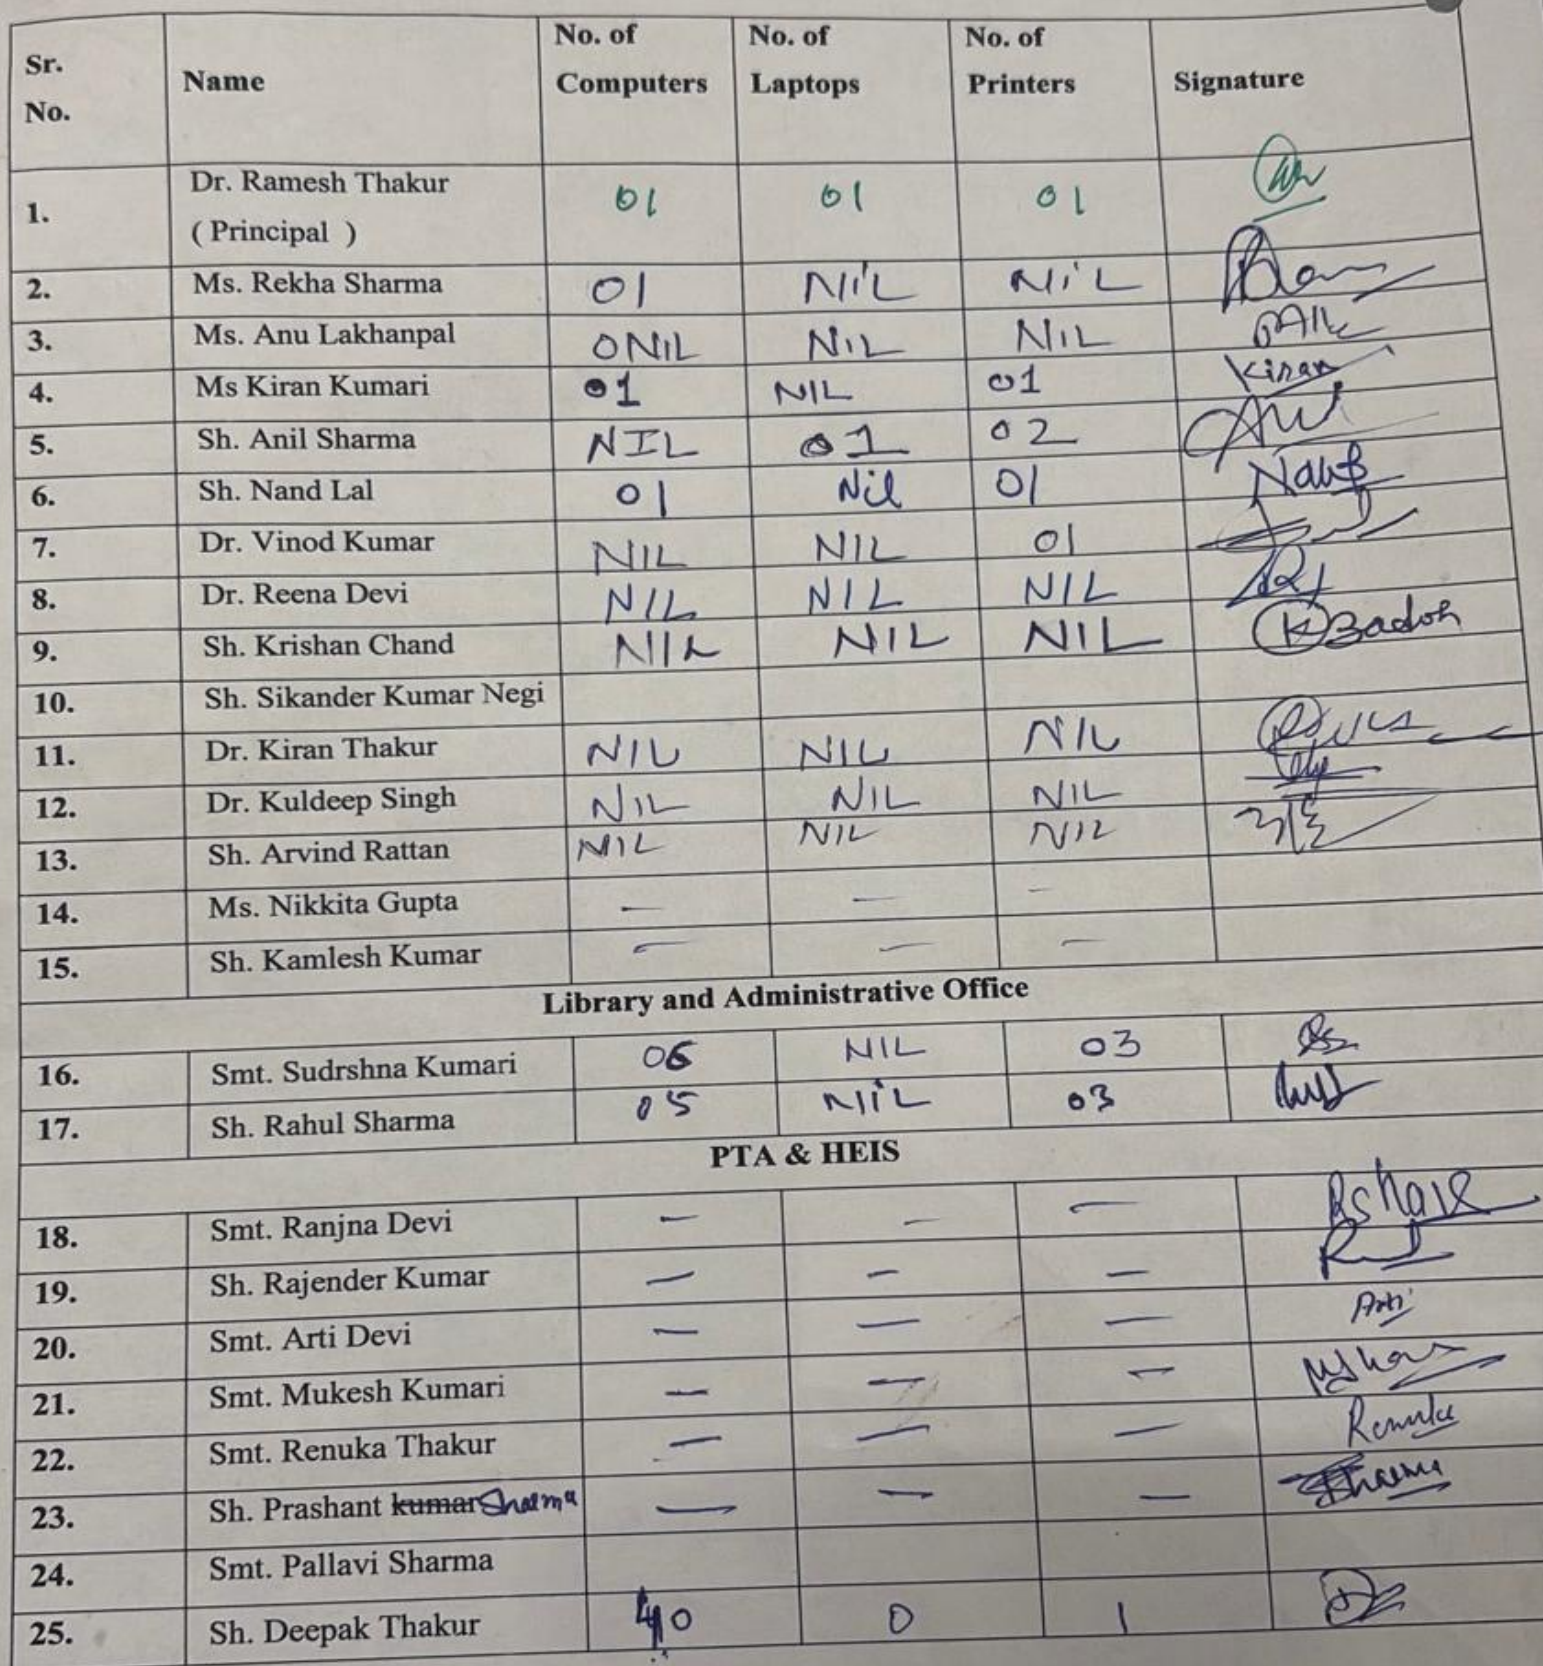 Sr. No. Name No. of Computers No. of Laptops No. of Printers Signature
1. Dr. Ramesh Thakur ( Principal ) 01 01 01
2. Ms. Rekha Sharma 01 NIL NIL
3. Ms. Anu Lakhanpal ONIL NIL NIL
4. Ms Kiran Kumari 01 NIL 01 Kiran
5. Sh. Anil Sharma NIL 01 02
6. Sh. Nand Lal 01 Nil 01
7. Dr. Vinod Kumar NIL NIL 01
8. Dr. Reena Devi NIL NIL NIL
9. Sh. Krishan Chand NIL NIL NIL
10. Sh. Sikander Kumar Negi
11. Dr. Kiran Thakur NIL NIL NIL
12. Dr. Kuldeep Singh NIL NIL NIL
13. Sh. Arvind Rattan NIL NIL NIL
14. Ms. Nikkita Gupta — — —
15. Sh. Kamlesh Kumar — — —
Library and Administrative Office
16. Smt. Sudrshna Kumari 06 NIL 03
17. Sh. Rahul Sharma 05 NIL 03
PTA & HEIS
18. Smt. Ranjna Devi — — —
19. Sh. Rajender Kumar — — —
20. Smt. Arti Devi — — — Arti
21. Smt. Mukesh Kumari — — —
22. Smt. Renuka Thakur — — — Renuka
23. Sh. Prashant kumar Sharma — — — Sharma
24. Smt. Pallavi Sharma
25. Sh. Deepak Thakur 40 0 1